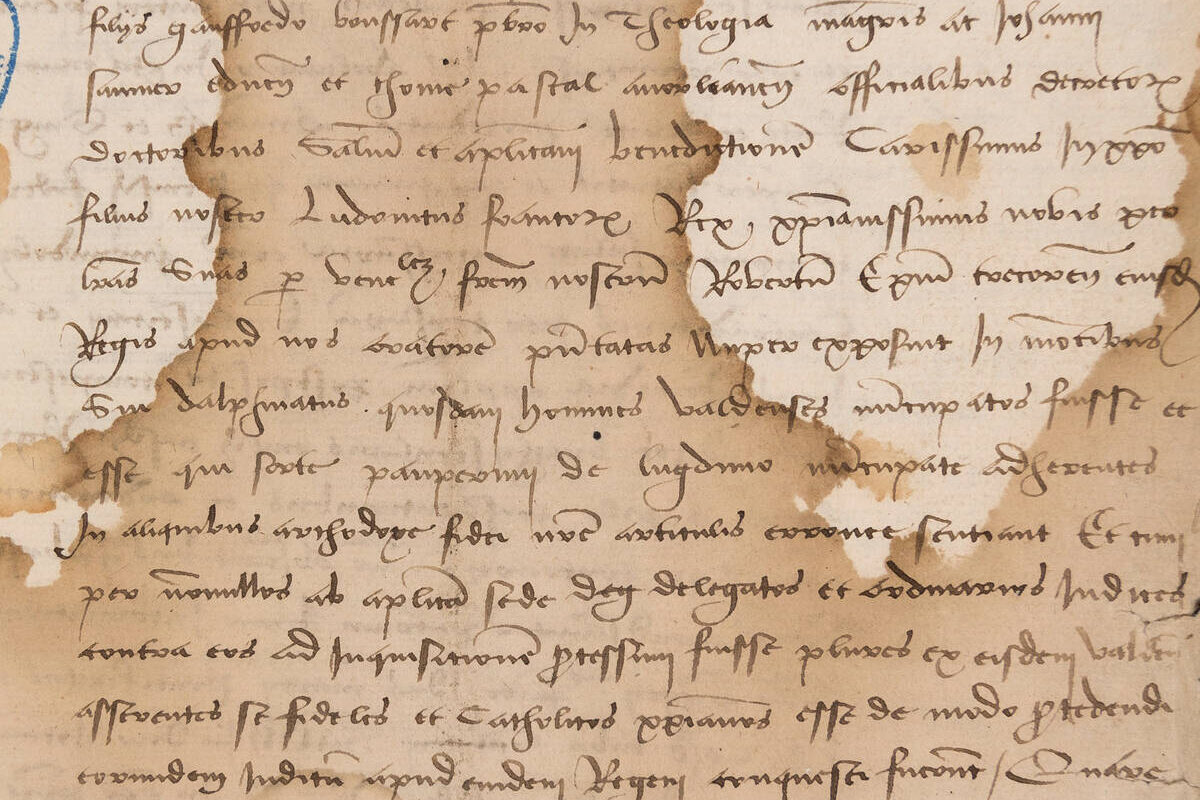 filijs gauffredo boussart pbro In Theologia magris ac Johanni
et thome pascal aurelianen officialibus decretorum
doctoribus Salutm et aplicam benedictionem Carissimus In xpo
filius noster Ludovicus francorum Rex xpianissimus nobis per
lras Suas per venelem frem nostrum Robertum Epum trecoren eiusdem
Regis apud nos oratorem pntatas Nuper exposuit In montibus
Sui dalphinatus quosdam homines valdenses nuncupatos fuisse et
esse qui secte pauperum de lugduno nuncupate adherentes
In aliquibus orthodoxe fidei nre articulis erronee sentiant Et cum
per nonnullos ab aplica sede deleg delegatos et ordinarios Iudices
contra eos ad Inquisitionem processum fuisset plures ex eisdem valden
asserentes se fideles et Catholicos xpianos esse de modo procedendi
eorumdem Iudicum apud eundem Regem conquesti fuerunt / Quare